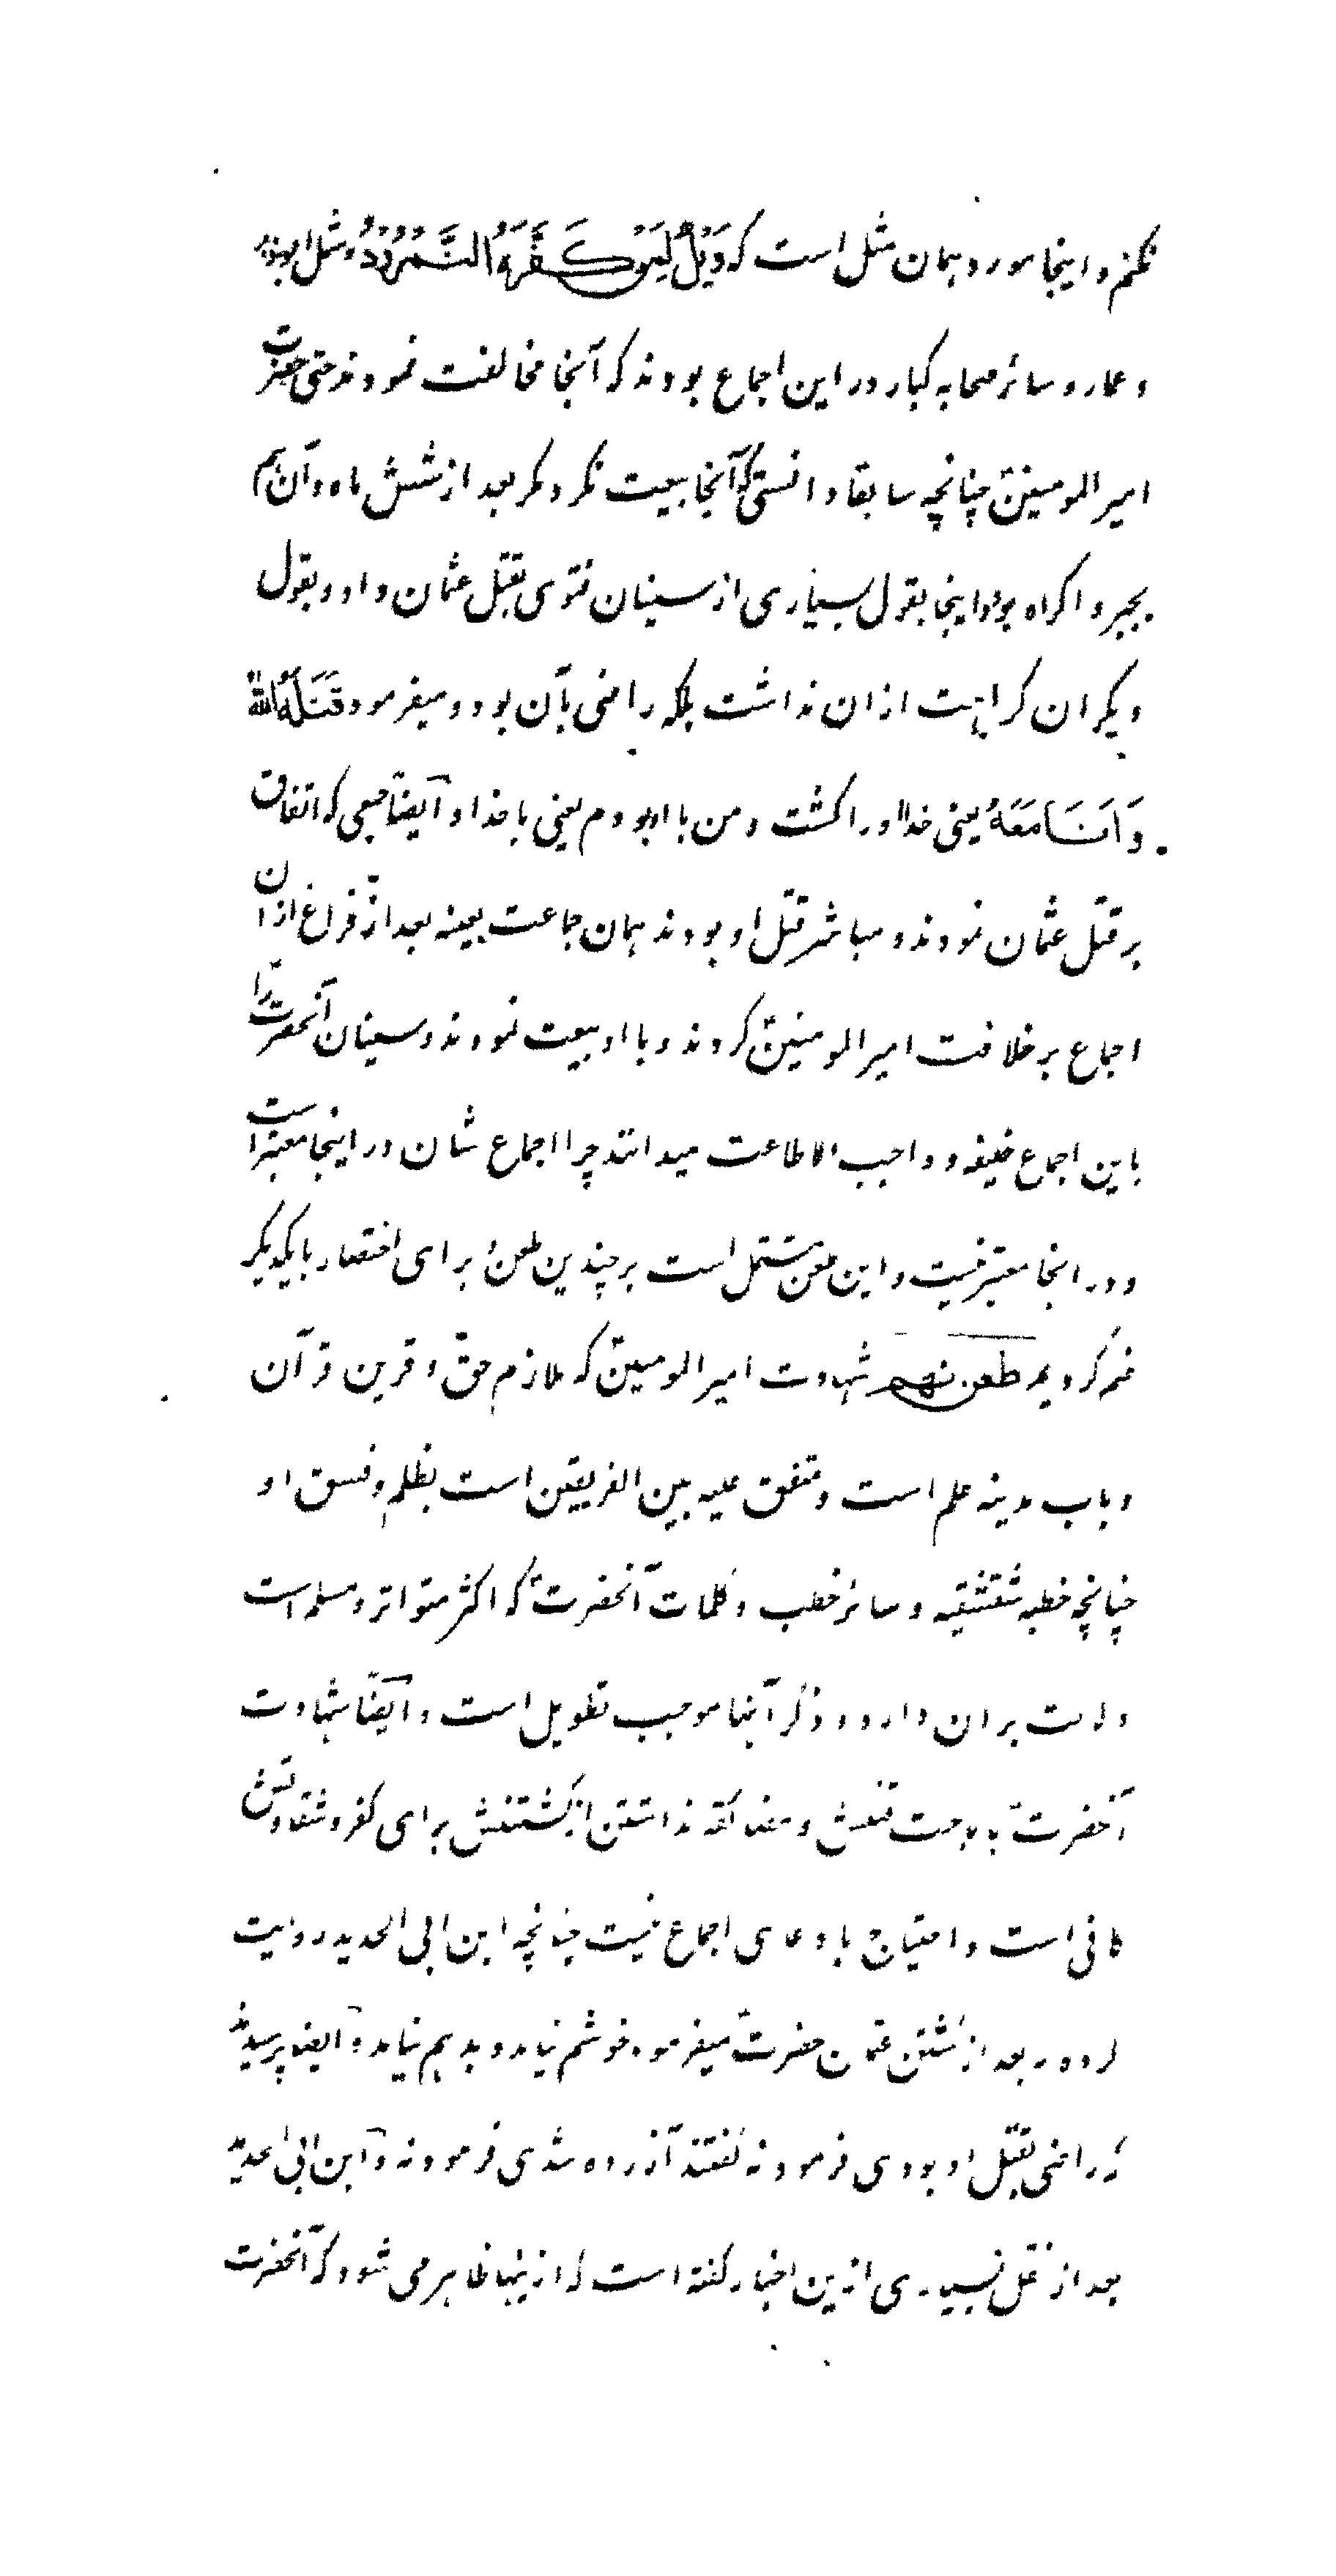 نکنم و اینجا مورد همان مثل است که وَیْلٌ لِمَنْ کَفَّرَهُ النَّمْرُوْدُ و مثل ابوذر
و عمار و سائر صحابه کبار در این اجماع بودند که آنجا مخالفت نمودند حتی حضرت
امیر المومنینؑ چنانچه سابقا دانستی که آنجا بیعت نکرد مگر بعد از شش ماه و آن هم
بجبر و اکراه بود و اینجا بقول بسیاری از سنیان فتوی بقتل عثمان داد و بقول
دیگران کراهت ازان نداشت بلکه راضی بآن بود و میفرمود قَتَلَهُ اللهُ
وَ اَنَا مَعَهُ یعنی خدا اورا کشت و من با او بودم یعنی با خدا و آیضاً جمعی که اتفاق
بر قتل عثمان نمودند و مباشر قتل او بودند همان جماعت بعینه بعد از فراغ ازان
اجماع بر خلافت امیر المومنینؑ کردند و با او بیعت نمودند و سنیان آنحضرتؑ را
باین اجماع خلیفه و واجب الاطاعت میدانند چرا اجماع شان در اینجا معتبر است
و در انجا معتبر نیست و این طعن مشتمل است بر چندین طعن برای اختصار با یکدیگر
ضم کردیم طعن نهم شهادت امیر المومنینؑ که ملازم حق و قرین قرآن
و باب مدینه علم است و متفق علیه بین الفریقین است بظلم و فسق او
چنانچه خطبه شقشقیه و سائر خطب و کلمات آنحضرتؑ که اکثر متواتر و مسلم است
دلالت بران دارد و ذکر آنها موجب تطویل است و آیضاً شهادت
آنحضرتؑ باباحت قتلش و مضائقه نداشتن از کشتنش برای کفر و شقاوتش
کافی است و احتیاج بادعای اجماع نیست چنانچه ابن ابی الحدید روایت
کرده که بعد از کشتن عثمان حضرتؑ میفرمود خوشم نیامد و بدم هم نیامد و آیضا پرسیدند
که راضی بقتل او بودی فرمود نه گفتند آزرده شدی فرمود نه و آبن ابی الحدید
بعد از نقل بسیاری ازین اخبار گفته است که ازینها ظاهر می شود که آنحضرت